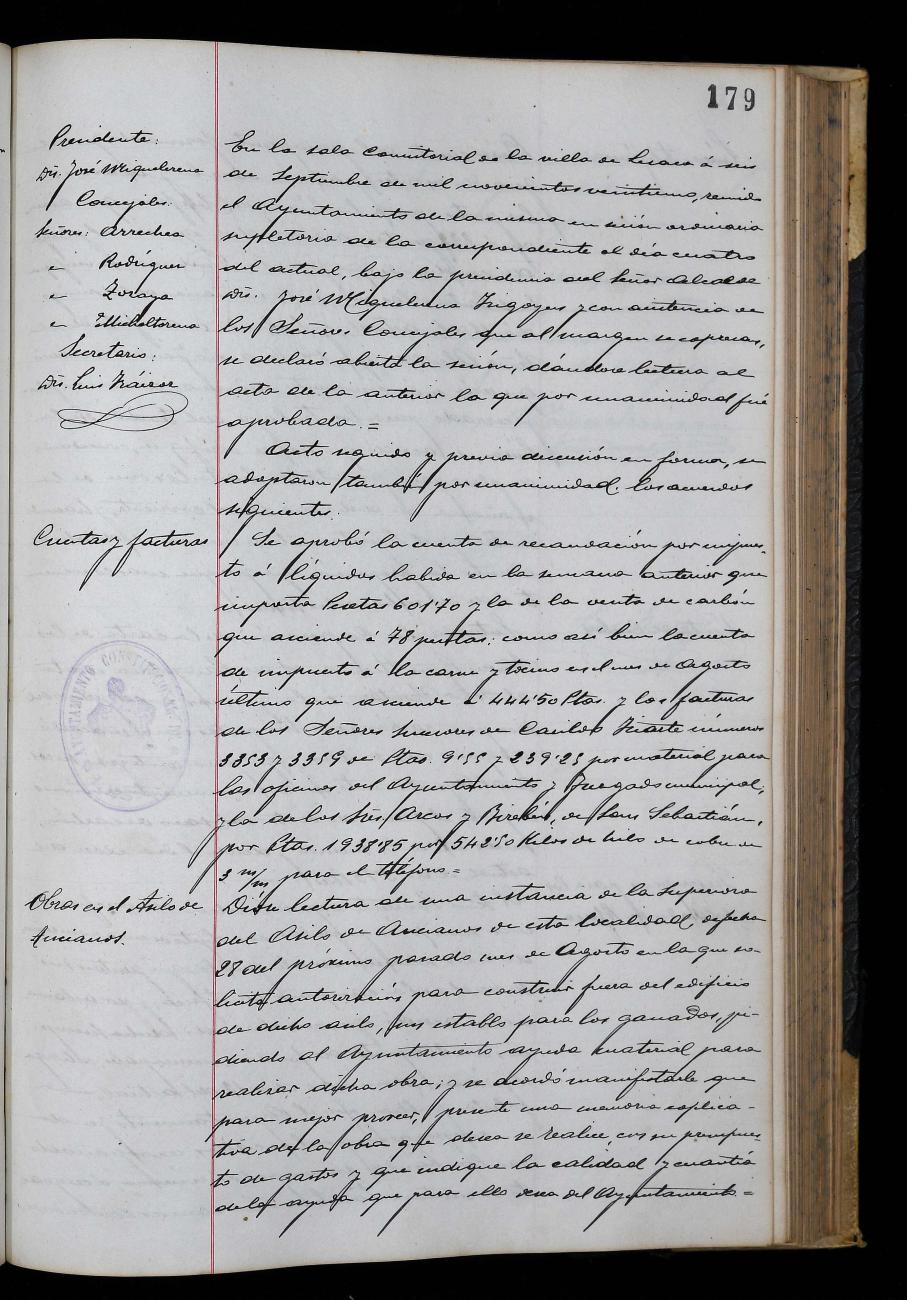 179
Presidente:
Dn. José Miquelerena
Concejales:
Señores: Arrechea
" Rodriguez
" Zoraya
" Micheltorena
Secretario:
Dn. Luis Iráizoz
En la sala Consistorial de la villa de Lesaca á seis
de Septiembre de mil novecientos veintiuno, reunido
el Ayuntamiento de la misma en sesión ordinaria
supletoria de la correspondiente el día cuatro
del actual, bajo la presidencia del Señor Alcalde
Dn. José Miquelerena Irigoyen y con asistencia de
los Señores Concejales que al margen se expresan,
se declaró abierta la sesión, dándose lectura al
acta de la anterior la que por unanimidad fué
aprobada. =
Acto seguido y previa discusión en forma, se
adoptaron también por unanimidad los acuerdos
siguientes:
Cuentas y facturas
Se aprobó la cuenta de recaudación por impues-
to á líquidos habida en la semana anterior que
importa Pesetas 601'70 y la de la venta de carbón
que asciende á 78 pesetas: como así bien la cuenta
de impuesto á la carne y tocino en el mes de Agosto
último que asciende á 444'50 Ptas. y las facturas
de los Señores sucesores de Cándido Iriarte números
3353 y 3359 de Ptas. 9'55 y 239'25 por material para
las oficinas del Ayuntamiento y Juzgado municipal,
y la de los Sres. Arcos y Birebén, de San Sebastián,
por Ptas. 1938'85 por 542'50 Kilos de hilo de cobre de
3 m/m para el teléfono =
Obras en el Asilo de
Ancianos.
Dióse lectura de una instancia de la Superiora
del Asilo de Ancianos de esta localidad, de fecha
28 del próximo pasado mes de Agosto en la que so-
licita autorización para construir fuera del edificio
de dicho asilo, un establo para los ganados, pi-
diendo al Ayuntamiento ayuda material para
realizar dicha obra; y se acordó manifestarle que
para mejor proveer, presente una memoria explica-
tiva de la obra que desea se realice, con su presupues-
to de gastos y que indique la calidad y cuantía
de la ayuda que para ello desea del Ayuntamiento =
AYUNTAMIENTO CONSTITUCIONAL